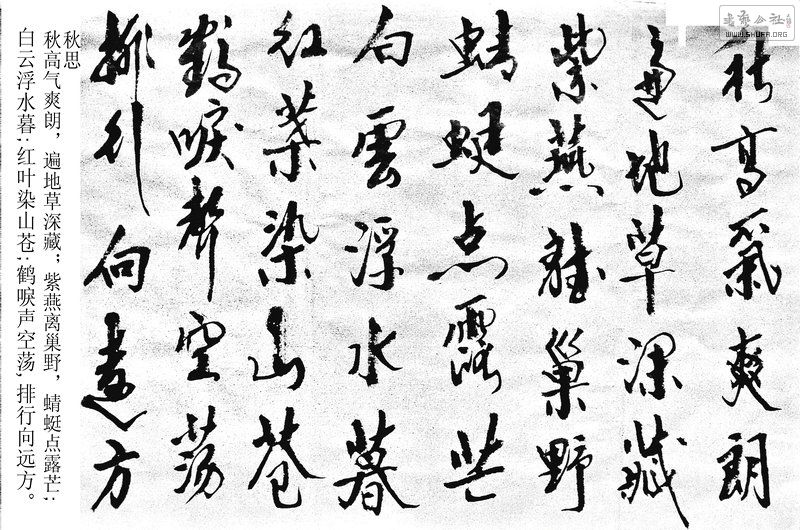 秋高氣爽朗
遍地草深藏
紫燕離巢野
蜻蜓点露芒
白雲浮水暮
红葉染山苍
鹤唳聲空荡
排行向遠方
秋思
秋高气爽朗，遍地草深藏；紫燕离巢野，蜻蜓点露芒；
白云浮水暮；红叶染山苍；鹤唳声空荡，排行向远方。
WWW.SHUFA.ORG